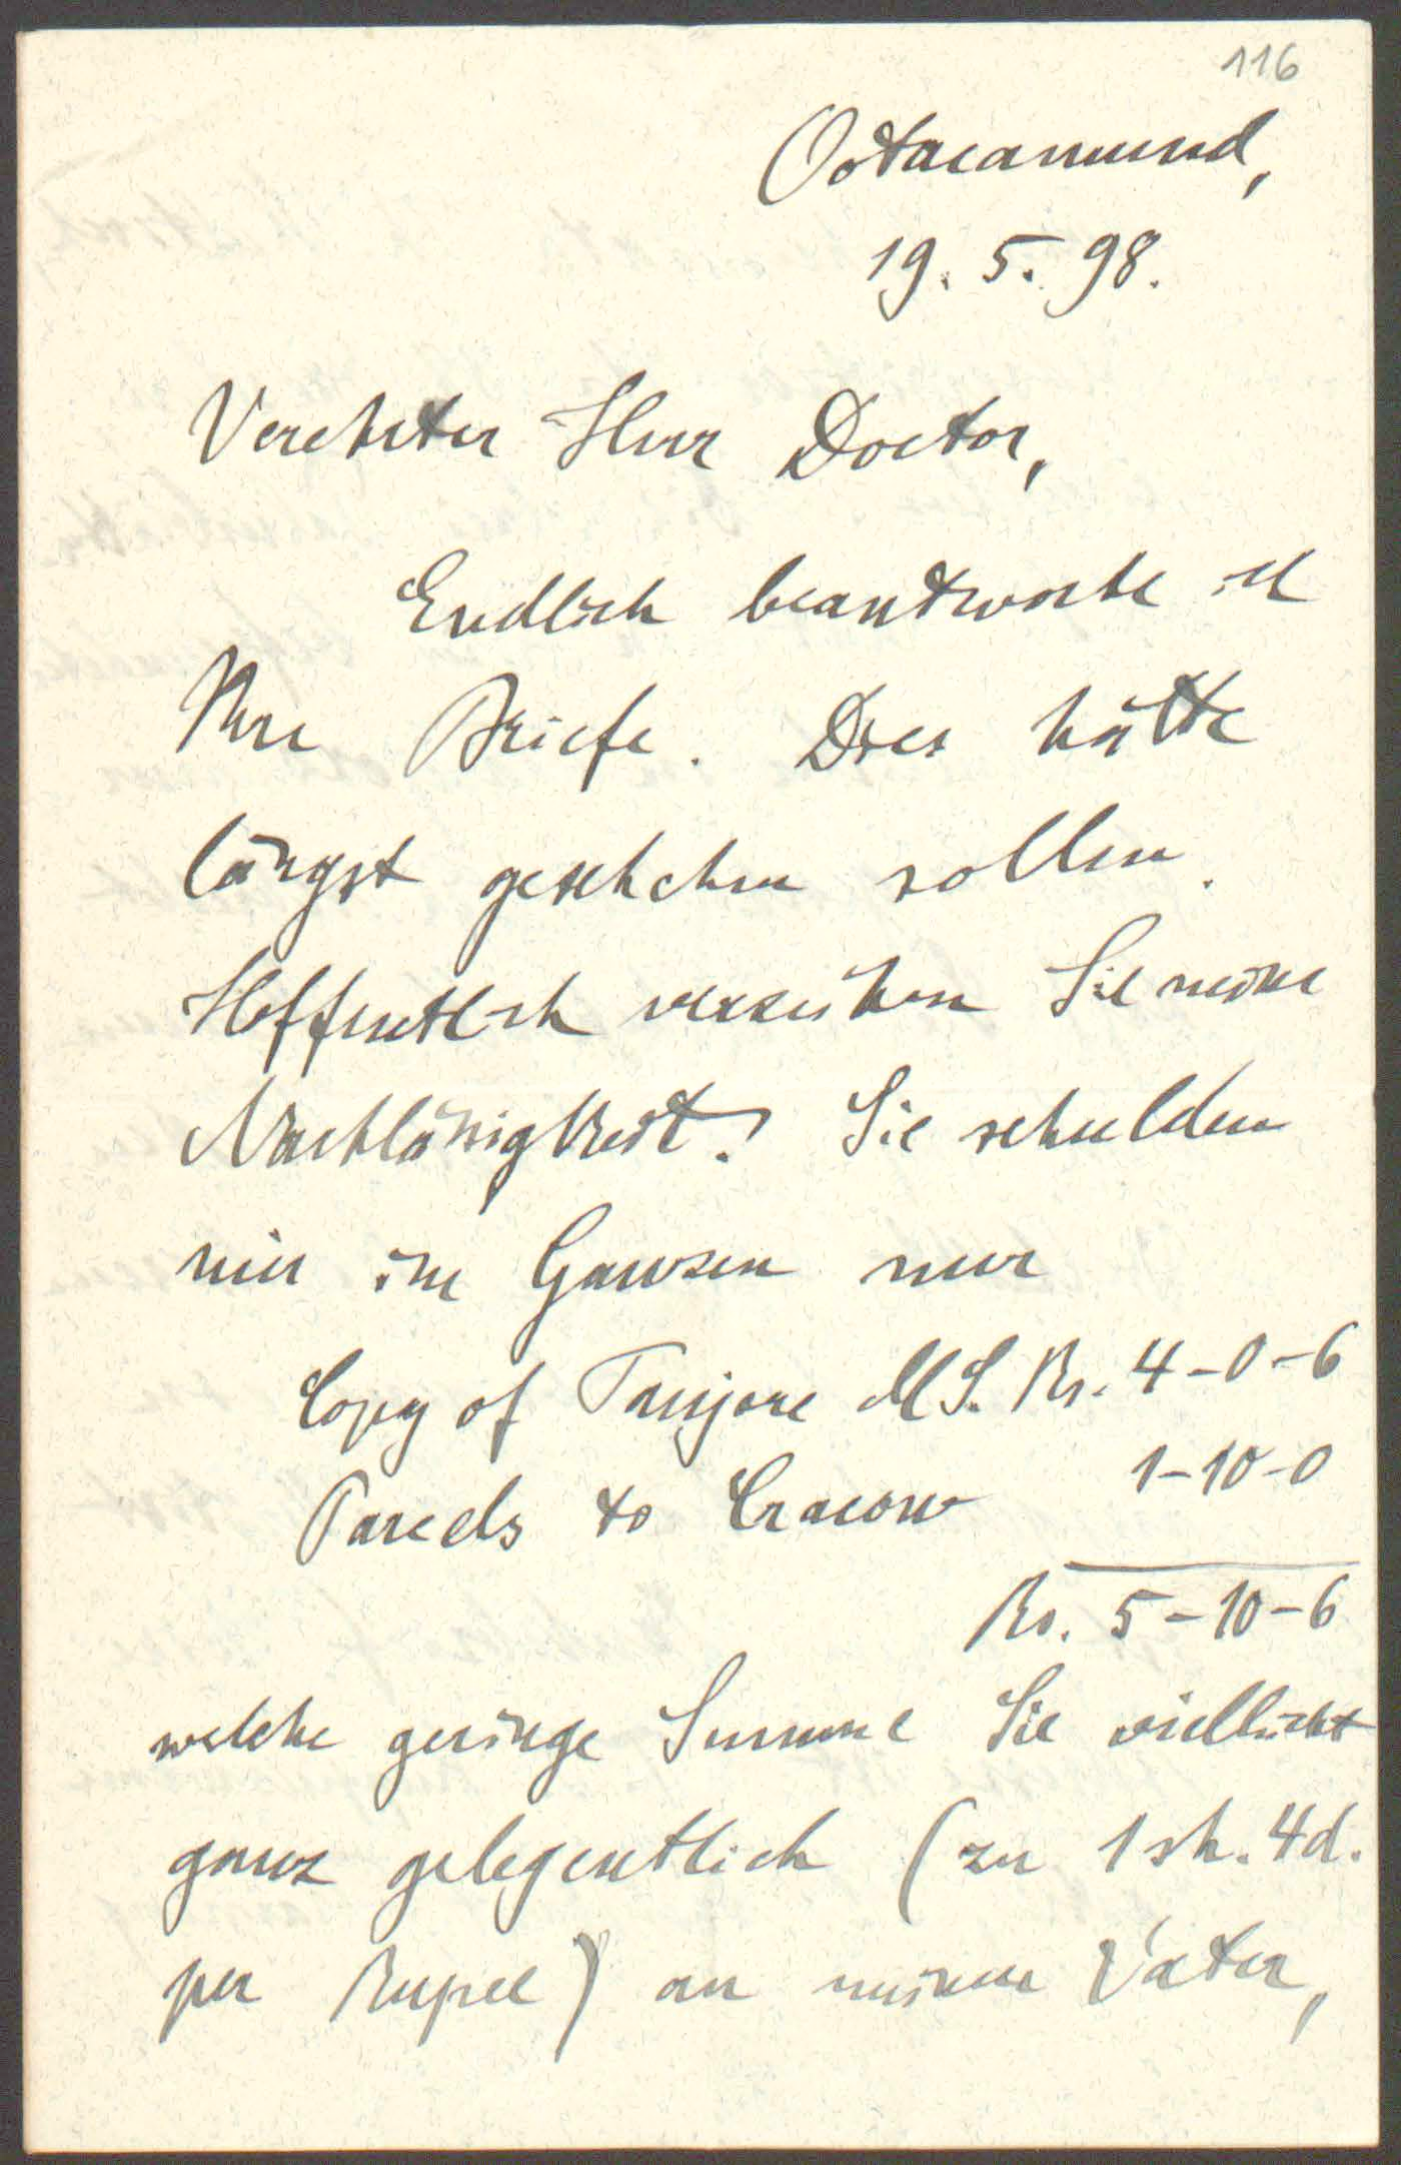 116
Ootacamund,
19. 5. 98.
Verehrter Herr Doctor,
Endlich beantworte ich
Ihre Briefe. Dies hätte
längst geschehen sollen.
Hoffentlich verzeihen Sie meine
Nachläßigkeit! Sie schulden
mir im Ganzen nur
Copy of Tanjore MS. Rs. 4-0-6
Parcels to Cracow 1-10-0
Rs. 5-10-6
welche geringe Summe Sie vielleicht
ganz gelegentlich (zu 1 sh. 4d.
per Rupee) an meinen Vater,